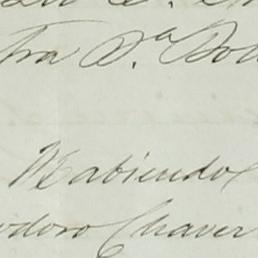 tra D.ª Do
Habiendo
odoro Chaver